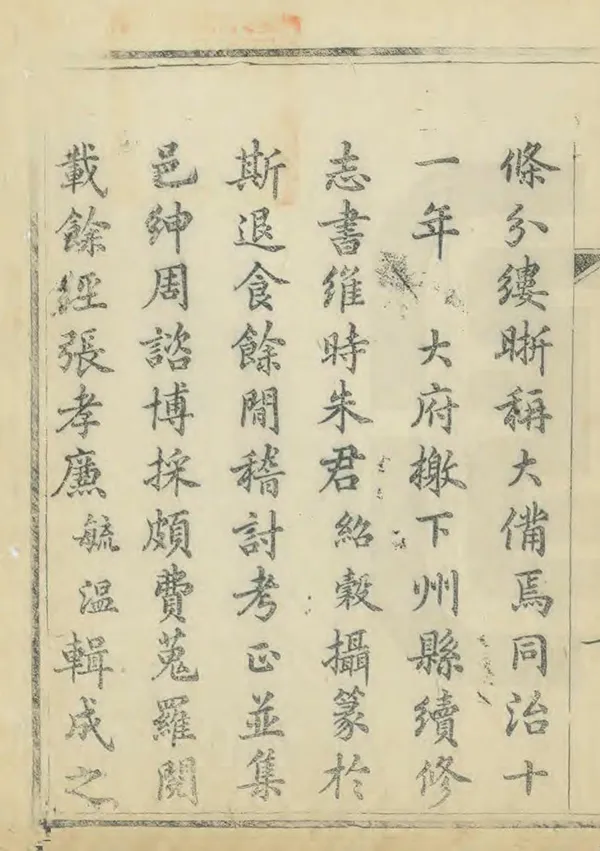 條分縷晣稱大備焉同治十
一年　大府檄下州縣續修
志書維時朱君紹穀攝篆於
斯退食餘閒稽討考正並集
邑紳周諮博採頗費蒐羅閱
載餘經張孝廉毓溫輯成之